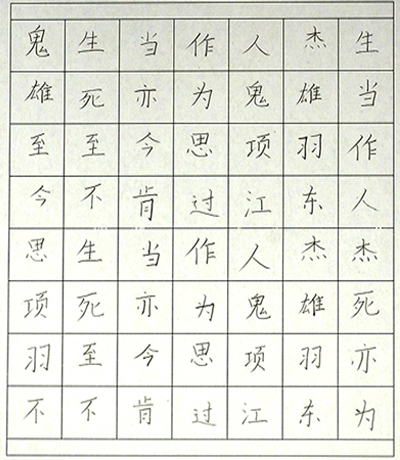 鬼生当作人杰生
雄死亦为鬼雄当
至至今思项羽作
今不肯过江东人
思生当作人杰杰
项死亦为鬼雄死
羽至今思项羽亦
不不肯过江东为